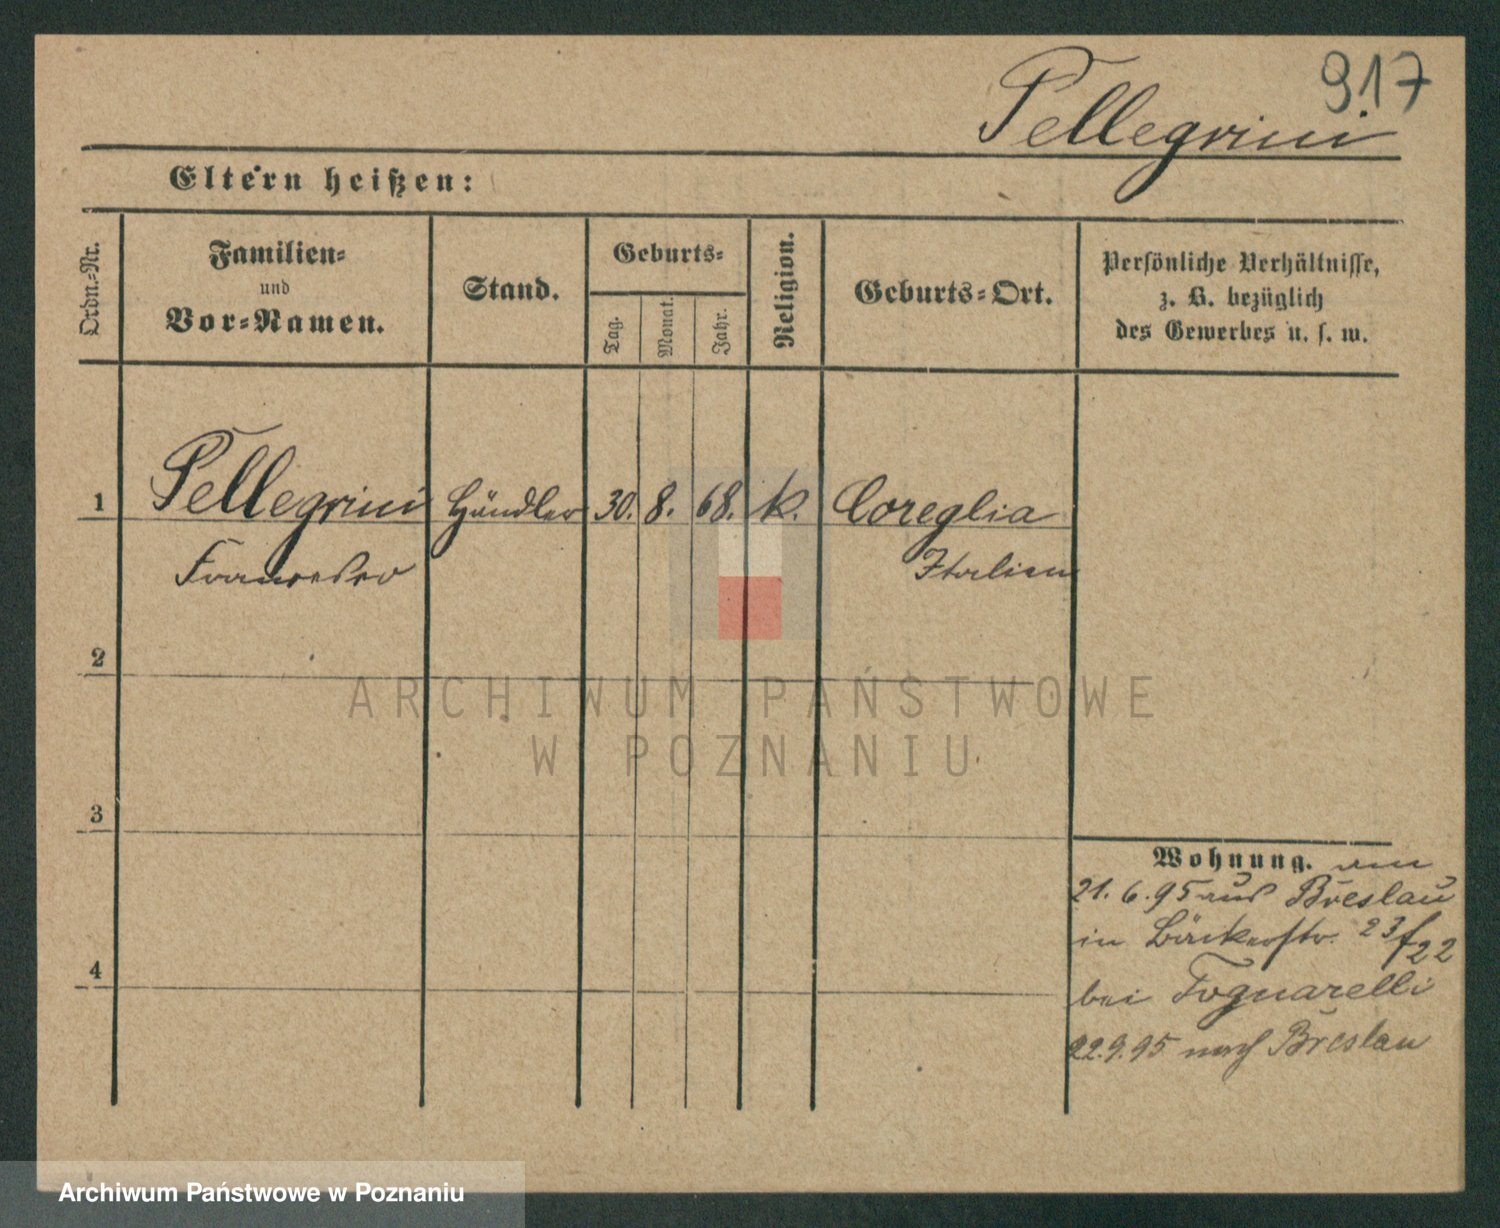 917
Pellegrini
Eltern heißen:
Ordn.-Nr.
Familien-
und
Vor-Namen.
Stand.
Geburts-
Tag.
Monat.
Jahr.
Religion.
Geburts-Ort.
Persönliche Verhältnisse,
z. B. bezüglich
des Gewerbes u. s. w.
1 Pellegrini Händler 30. 8. 68. k. Coreglia
Francesco Italien
2
ARCHIWUM PAŃSTWOWE
W POZNANIU
3
Wohnung. am
21. 6. 95 aus Breslau
in Bäckerstr. 23/22
bei Tognarelli
22. 9. 95 nach Breslau
4
Archiwum Państwowe w Poznaniu